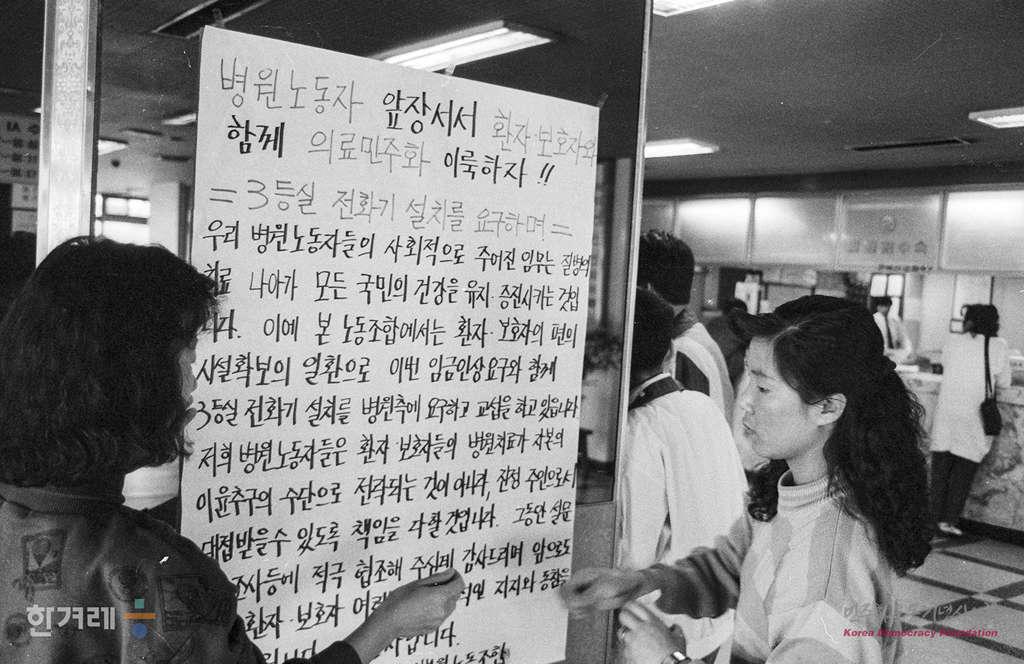 병원노동자 앞장서서 환자·보호자와
함께 의료민주화 이룩하자!!
= 3등실 전화기 설치를 요구하며 =
우리 병원노동자들의 사회적으로 주어진 임무는 질병의
치료 나아가 모든 국민의 건강을 유지 증진시키는 것입
니다. 이에 본 노동조합에서는 환자·보호자의 편의
시설확보의 일환으로 이번 임금인상요구와 함께
3등실 전화기 설치를 병원측에 요구하고 교섭을 하고 있읍니다
저희 병원노동자들은 환자·보호자들의 병원치료가 자본의
이윤추구의 수단으로 전락되는 것이 아니라, 진정 주인으로서
대접받을수 있도록 책임을 다할 것입니다. 그동안 설문
조사등에 적극 협조해 주신데 감사드리며 앞으로도
환자·보호자 지지와 동참을
니다.
병원노동조합
한겨레
Korea Democracy Foundation